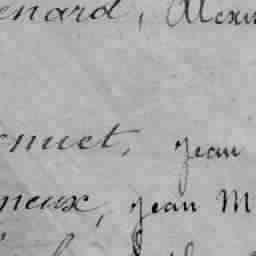 enard, Alexa
nuet, jean
neux, jean M